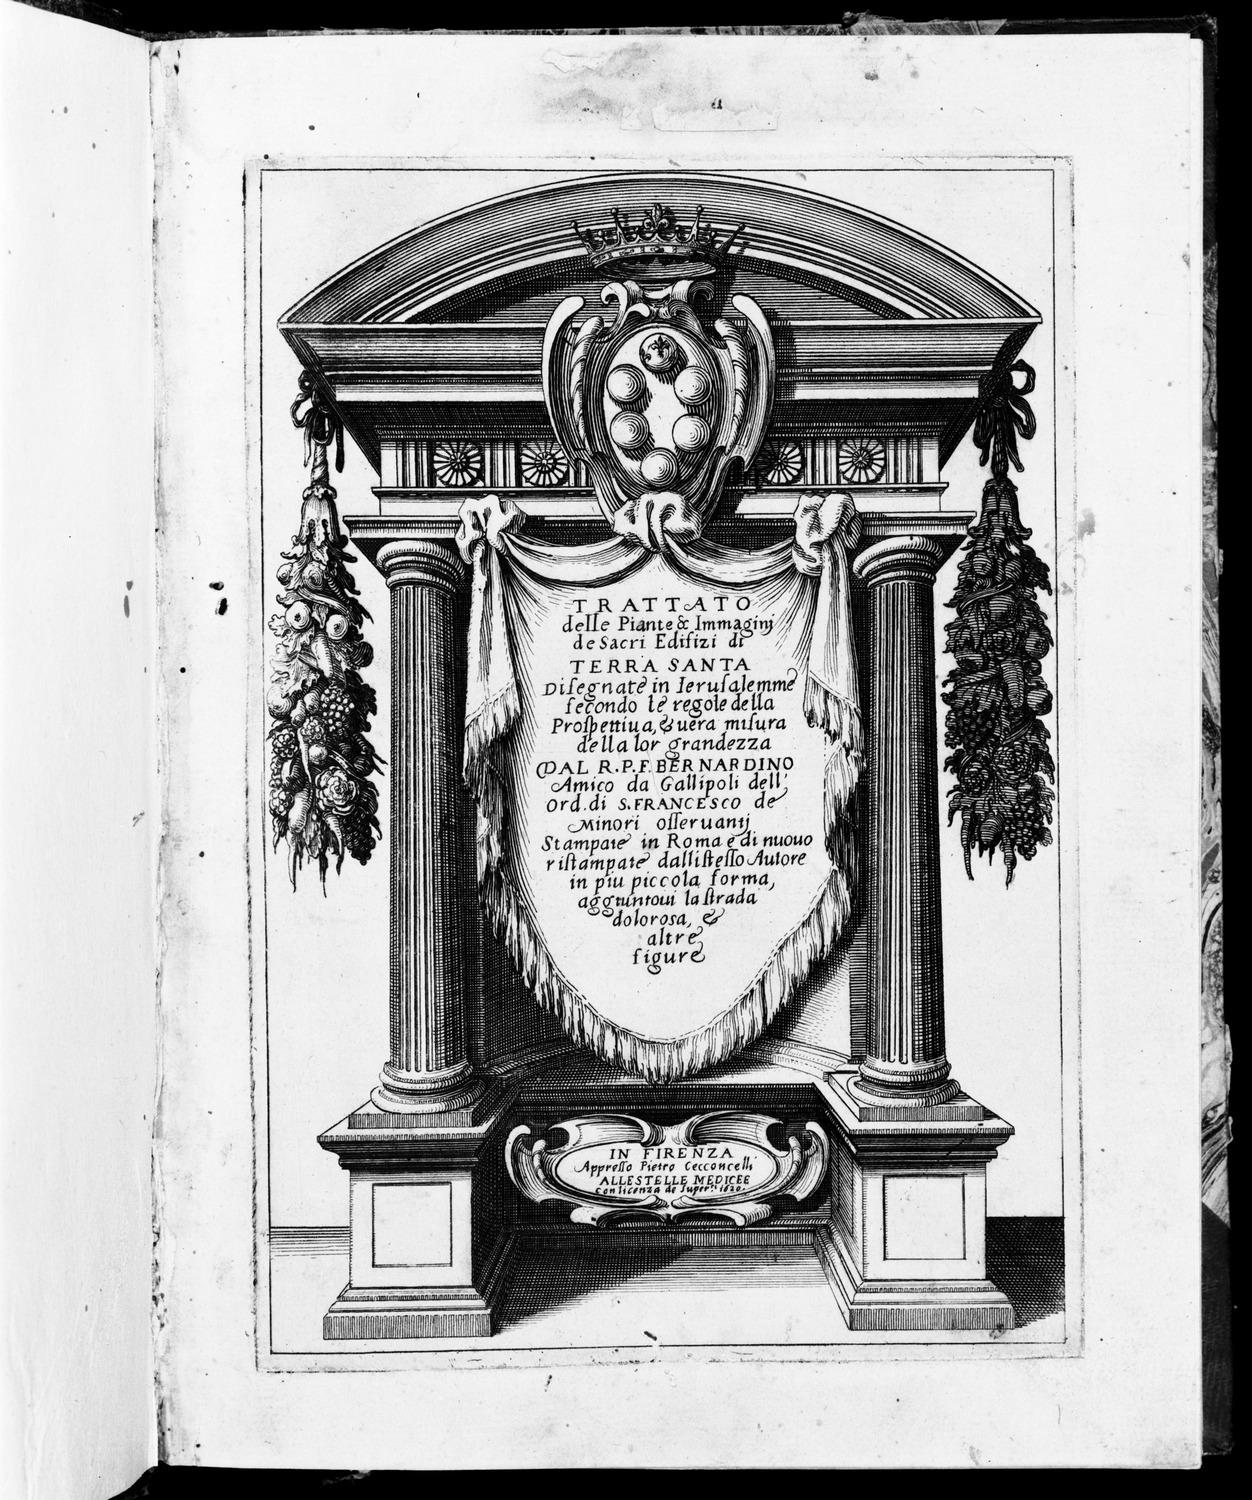 TRATTATO
delle Piante & Immagini
de Sacri Edifizi di
TERRA SANTA
Disegnate in Ierusalemme
secondo le regole della
Prospettiua, & uera misura
della lor grandezza
DAL R.P.F. BERNARDINO
Amico da Gallipoli dell'
ord. di S. FRANCESCO de
Minori osseruanti
Stampate in Roma e di nuouo
ristampate dallistesso Autore
in piu piccola forma,
aggiuntoui la strada
dolorosa, &
altre
figure
IN FIRENZA
Appresso Pietro Cecconcelli
ALLE STELLE MEDICEE
Con licenza de Super.ri 1620.